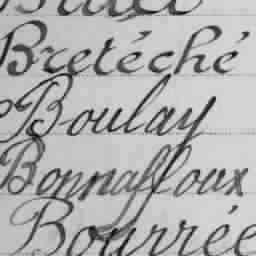 Bretéché
Boulay
Bonnaffoux
Bourrée